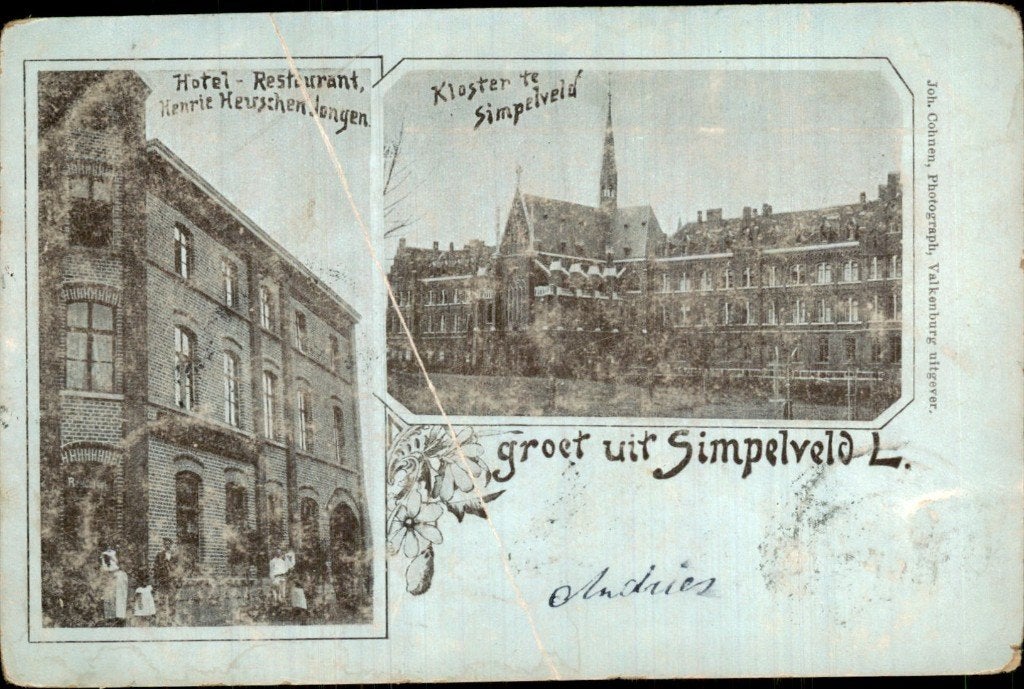 Hotel - Restaurant,
Henrie Heuschen Jongen.
Kloster te
Simpelveld
Joh. Cohnen, Photograph, Valkenburg uitgever.
groet uit Simpelveld L.
Andries